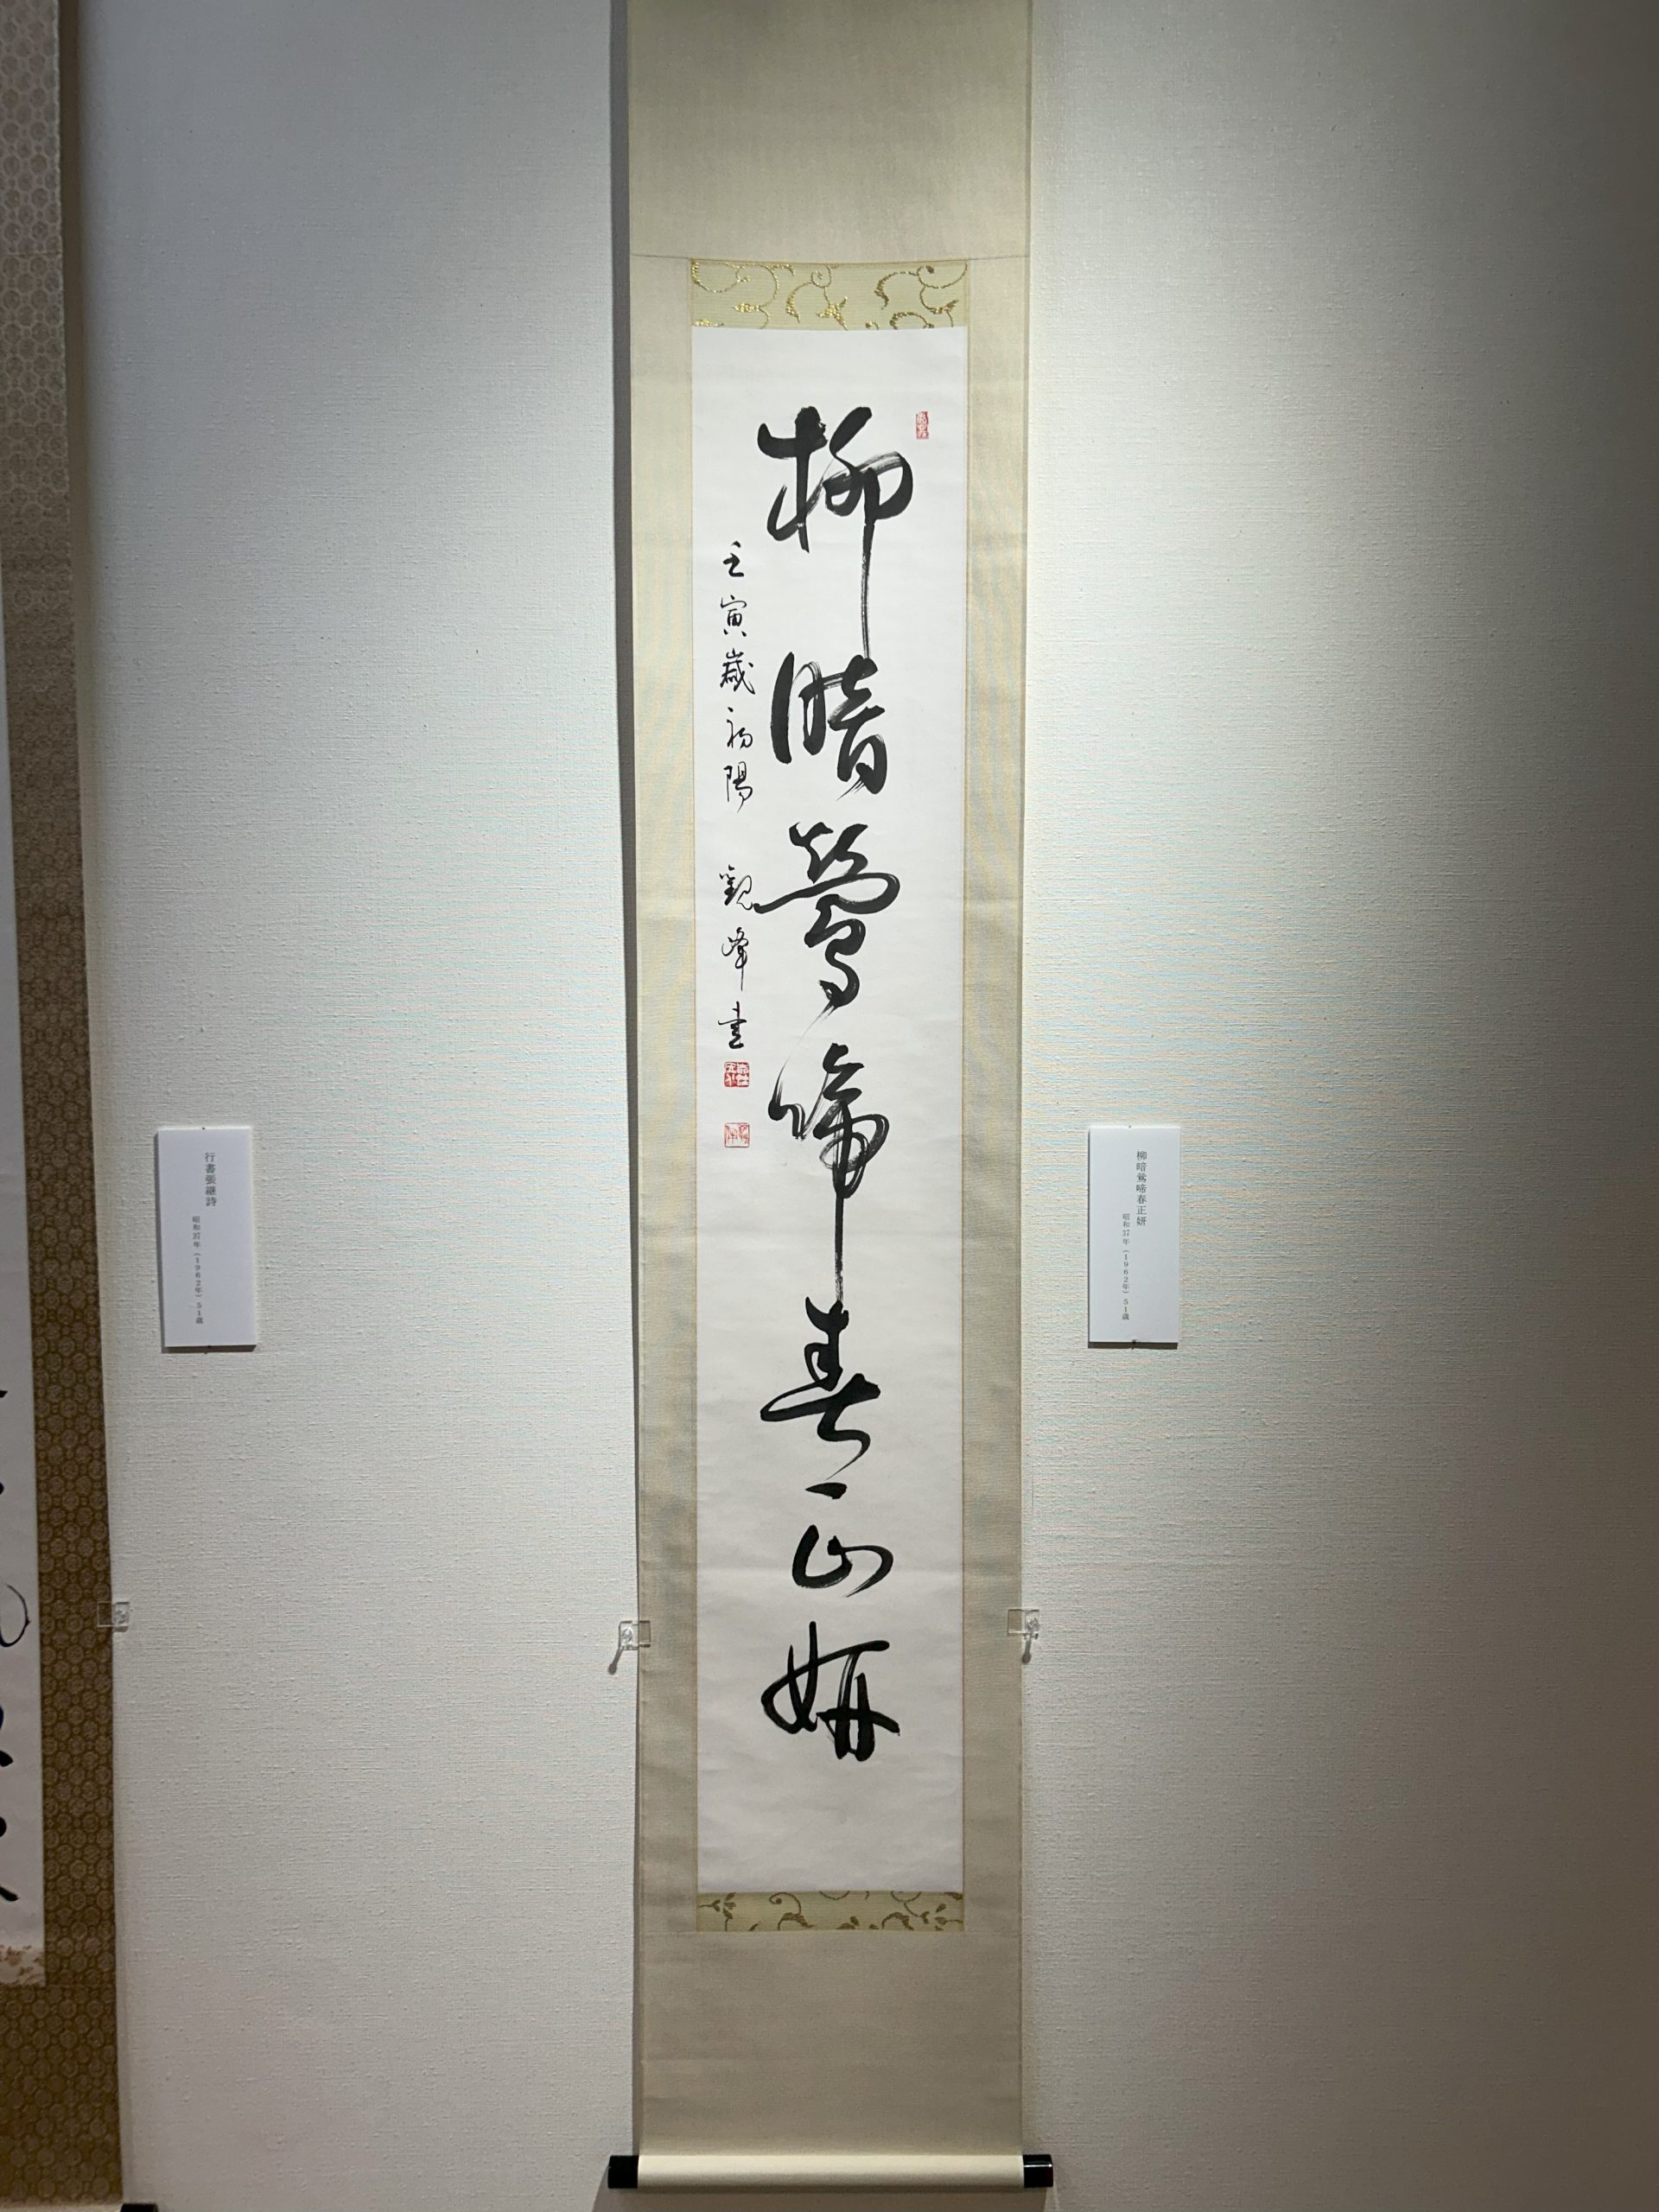 柳暗鶯啼春正妍
壬寅歳初陽 觀峰書
柳暗鶯啼春正妍
昭和37年(1962年)51歳
行書張継詩
昭和37年(1962年)51歳